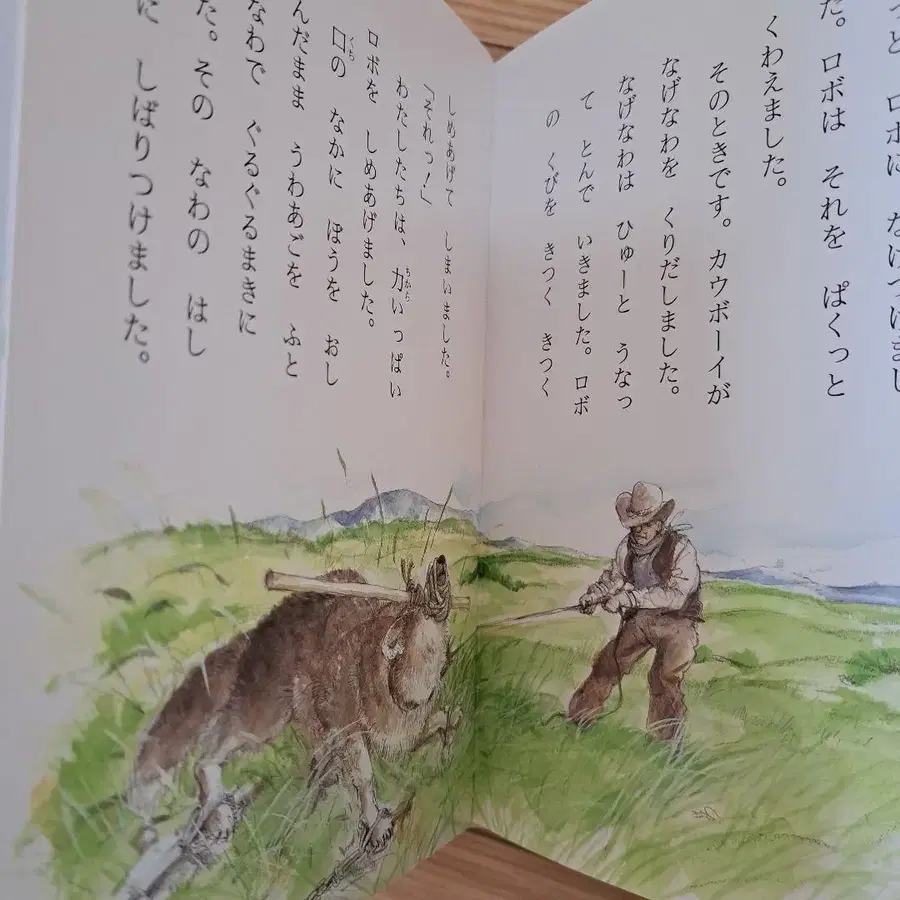 っと ロボに なげつけまし
た。ロボは それを ぱくっと
くわえました。
そのときです。カウボーイが
なげなわを くりだしました。
なげなわは ひゅーと うなっ
て とんで いきました。ロボ
の くびを きつく きつく
しめあげて しまいました。
「それっ！」
わたしたちは、力いっぱい
ちから
ロボを しめあげました。
口の なかに ぼうを おし
くち
んだまま うわあごを ふと
なわで ぐるぐるまきに
た。その なわの はし
に しばりつけました。